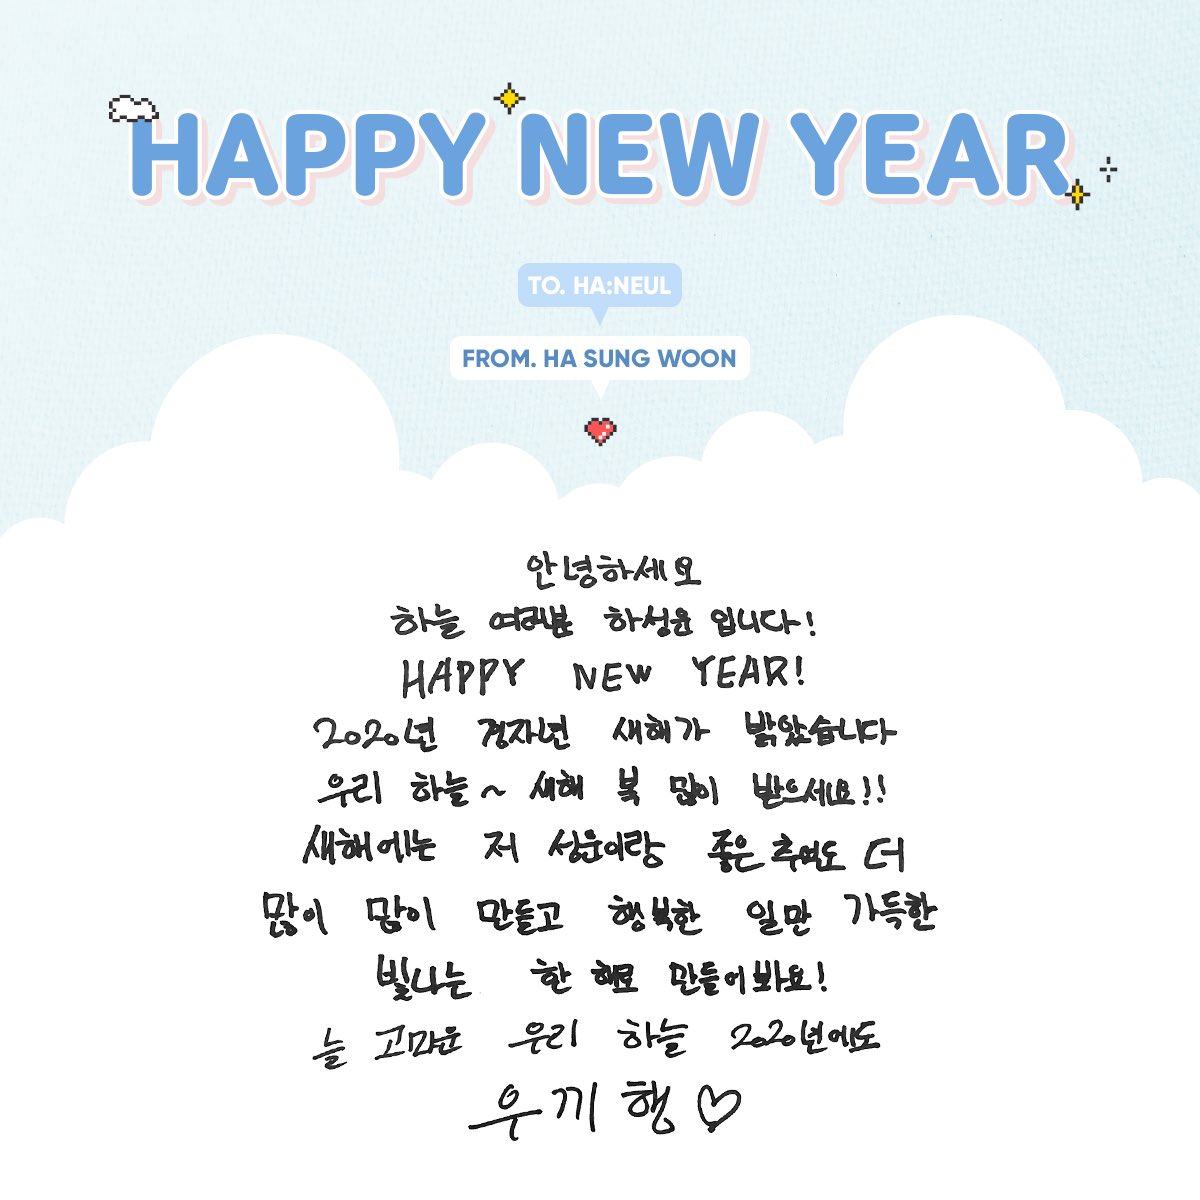 HAPPY NEW YEAR
TO. HA:NEUL
FROM. HA SUNG WOON
안녕하세요
하늘 여러분 하성운 입니다!
HAPPY NEW YEAR!
2020년 경자년 새해가 밝았습니다
우리 하늘~ 새해 복 많이 받으세요!!
새해에는 저 성운이랑 좋은 추억도 더
많이 많이 만들고 행복한 일만 가득한
빛나는 한 해로 만들어봐요!
늘 고마운 우리 하늘 2020년에도
우끼행♡